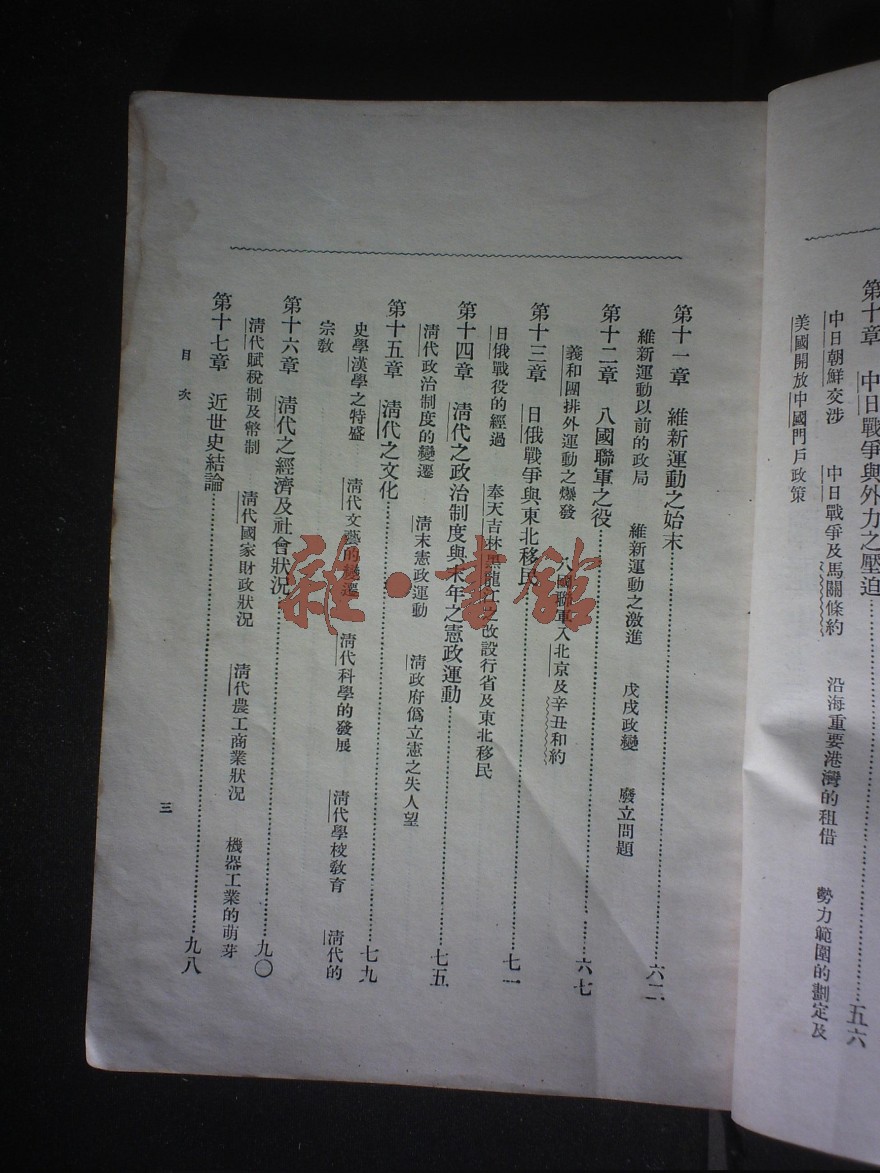 第十章　中日戰爭與外力之壓迫……五六
中日朝鮮交涉　中日戰爭及馬關條約　沿海重要港灣的租借　勢力範圍的劃定及
美國開放中國門戶政策
第十一章　維新運動之始末……六二
維新運動以前的政局　維新運動之激進　戊戌政變　廢立問題
第十二章　八國聯軍之役……六七
義和團排外運動之爆發　八國聯軍入北京及辛丑和約
第十三章　日俄戰爭與東北移民……七一
日俄戰役的經過　奉天吉林黑龍江之改設行省及東北移民
第十四章　清代之政治制度與末年之憲政運動……七五
清代政治制度的變遷　清末憲政運動　清政府僞立憲之失人望
第十五章　清代之文化……七九
史學漢學之特盛　清代文藝的變遷　清代科學的發展　清代學校教育　清代的
宗教
第十六章　清代之經濟及社會狀況……九〇
清代賦稅制及幣制　清代國家財政狀況　清代農工商業狀況　機器工業的萌芽
第十七章　近世史結論……九八
目次
三
雜·書館